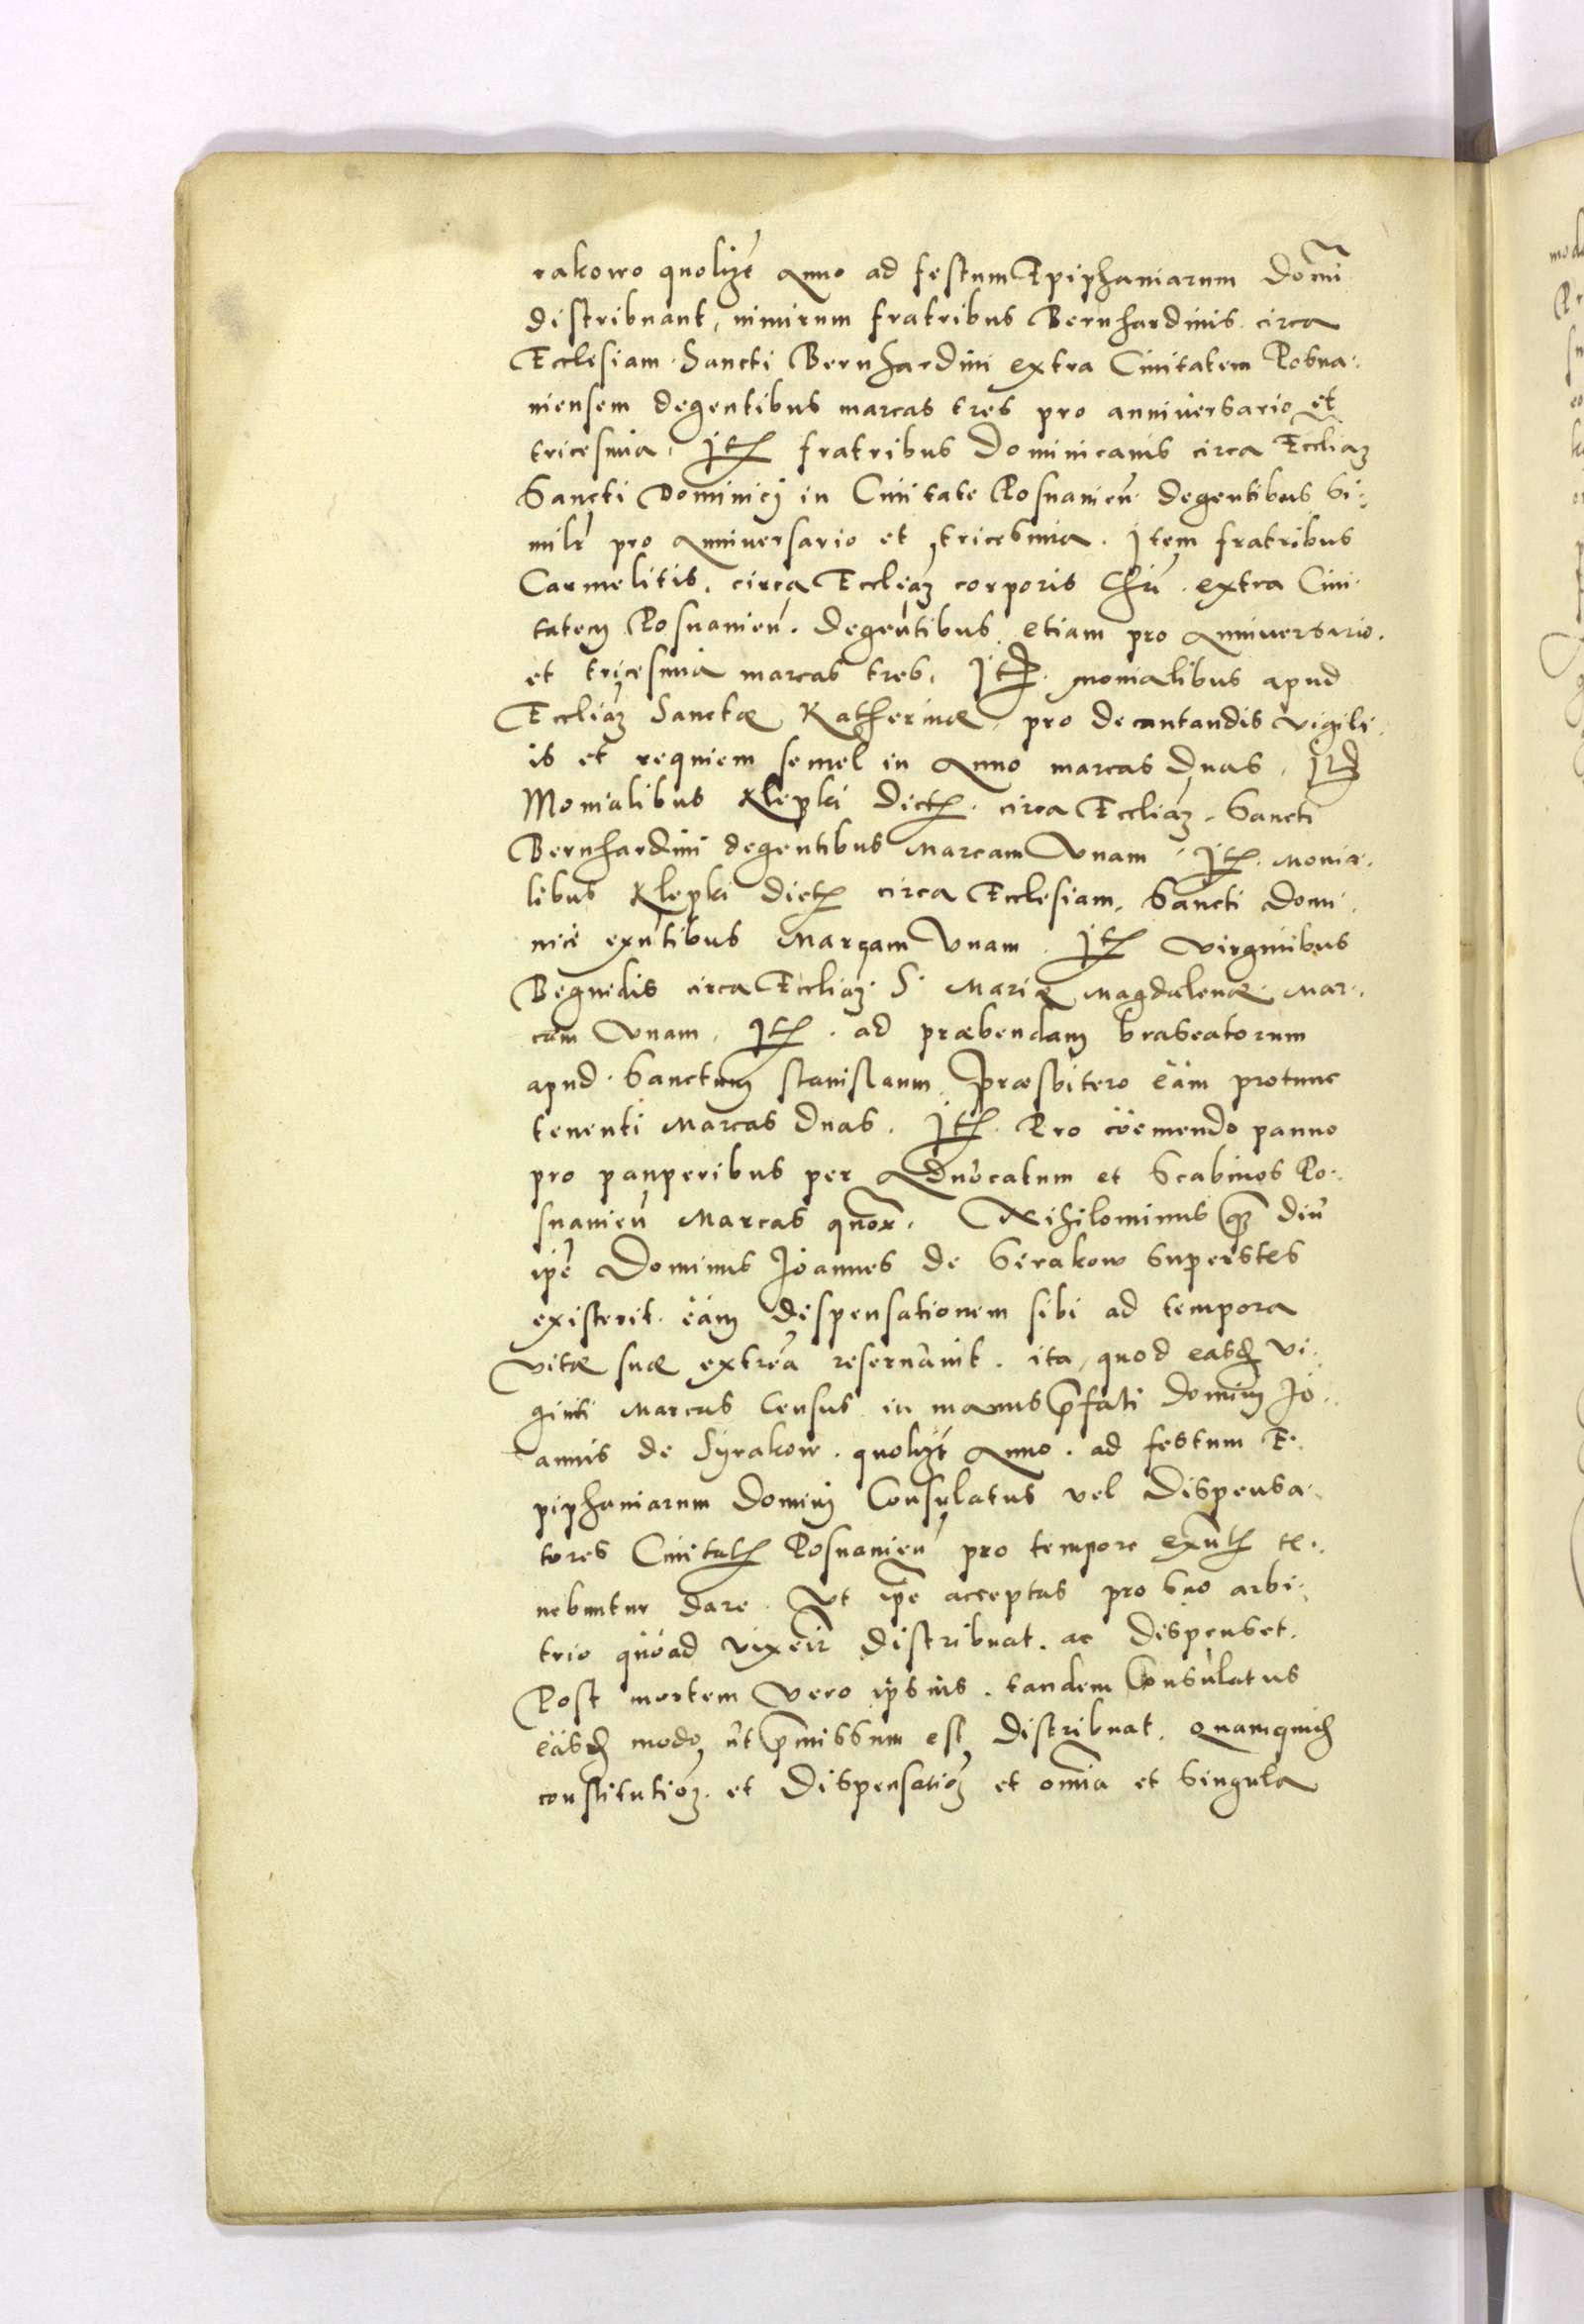 rakowo quolizt Anno ad festum Epiphaniarum Domi
distribuant, nimirum fratribus Bernhardinis circa
Ecclesiam Sancti Bernhardini extra Ciuitatem Posna
niensem degentibus marcas tres pro anniuersario et
tricesima, Jtz fratribus Dominicanis circa Eccliaz
Sancti Dominici in Ciuitate Posnanien degentibus Si
milr pro Anniuersario et tricesima. Jtem fratribus
Carmelitis, circa Eccliaz corporis Chri extra Ciui
tatem Posnanien. degentibus etiam pro Anniuersario.
et tricesima marcas tres, Jtz. monialibus apud
Eccliaz Sanctæ Katherinæ, pro decantandis vigili
is et requiem semel in Anno marcas Duas, Jtz
Monialibus Klepki Dictz. circa Eccliaz, Sancti
Bernhardini degentibus Marcam Vnam, Jtz Monia
libus Klepki dictz circa Ecclesiam, Sancti Domi
nici exntibus Marcam Vnam. Jtz Virginibus
Beguidis circa Eccliaz S. Mariæ Magdalenæ Mar
cam Vnam, Jtz. ad præbendam braseatorum
apud Sanctum Stanislaum, Præsbitero eam protunc
tenenti Marcas Duas. Jtz. Pro coemendo panno
pro pauperibus per Aduocatum et Scabinos Po
snanien Marcas quor. Nihilominus qz diu
ipe Dominus Joannes de Sirakow Superstes
existerit. eam dispensationem sibi ad tempora
vitæ suæ extrea reseruauit. ita, quod easd vi
ginti Marcas Census in manus pfati Domini Jo
annis de Syrakow. quolizt Anno. ad festum E
piphaniarum Domini Consulatus vel Dispensa
tores Ciuitatz Posnanien pro tempore exntz te
nebuntur dare. Vt ipe acceptas pro Suo arbi
trio quoad vixeir distribuat. ac dispenset.
Post mortem Vero ipsius. tandem Consulatus
easd modo ut pmissum est distribuat. Quamquid
constitutioz. et Dispensatioz et omia et Singula